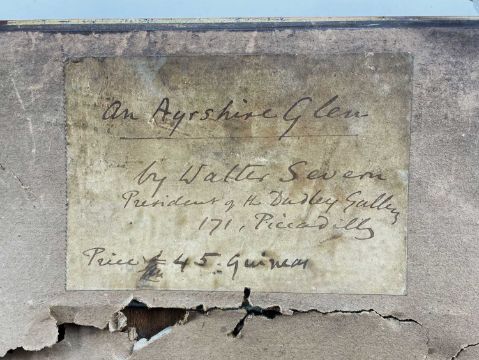 An Ayrshire Glen
by Walter Severn
President of the Dudley Gallery
171, Piccadilly
Price 45. Guineas